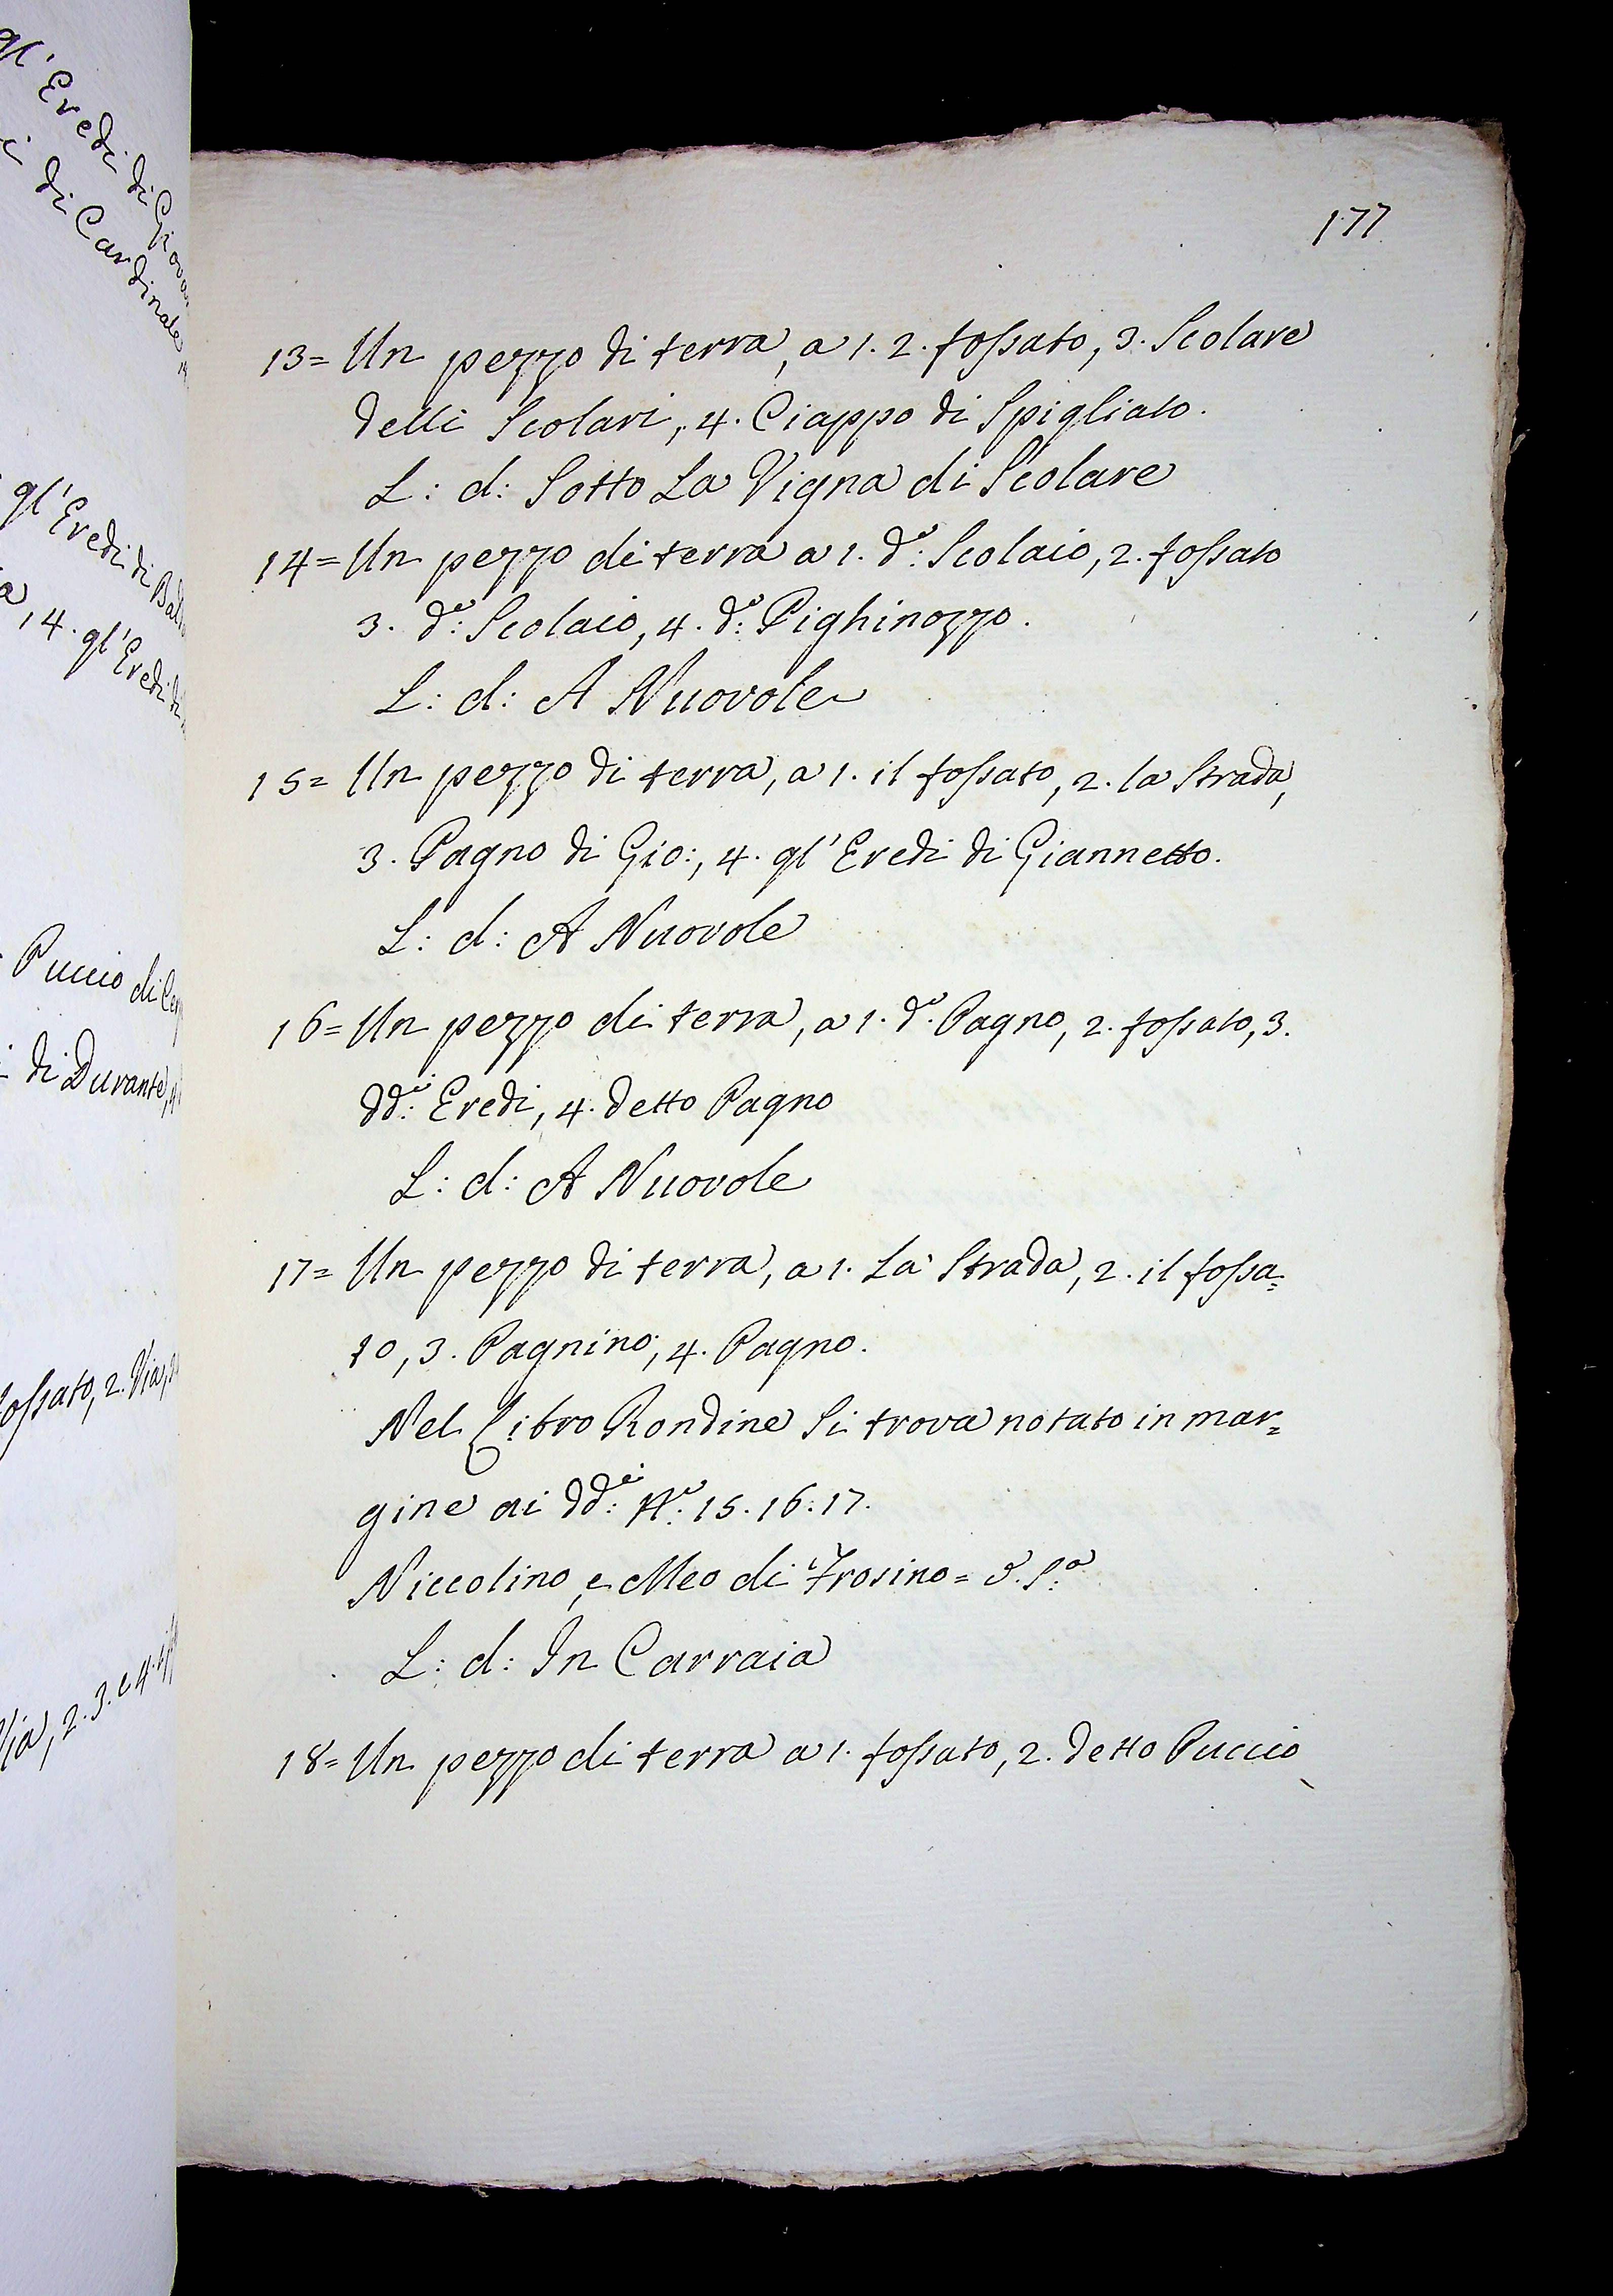 gl' Eredi di Giova
i di Cardinale
gl' Eredi di Bal
a, 4. gl' Eredi di
Puccio di Cen
di Durante,
fossato, 2. Via,
Via, 2. 3. e 4.
177
13= Un pezzo di terra, a 1. 2. fossato, 3. Scolare
delli Scolari, 4. Ciappo di Spigliato.
L: d: Sotto La Vigna di Scolare
14= Un pezzo di terra a 1. d.º: Scolaio, 2. fossato
3. d.º: Scolaio, 4. d.º: Pighinozzo.
L: d: A Nuovole
15= Un pezzo di terra, a 1. il fossato, 2. la Strada,
3. Pagno di Gio:, 4. gl' Eredi di Giannetto.
L: d: A Nuovole
16= Un pezzo di terra, a 1. d.º Pagno, 2. fossato, 3.
dd.i: Eredi, 4. detto Pagno
L: d: A Nuovole
17= Un pezzo di terra, a 1. La Strada, 2. il fossa=
to, 3. Pagnino, 4. Pagno.
Nel Libro Rondine Si trova notato in mar=
gine ai dd.i: N.º: 15. 16: 17.
Niccolino, e Meo di Frosino=
L: d: In Carraia
18= Un pezzo di terra a 1. fossato, 2. detto Puccio